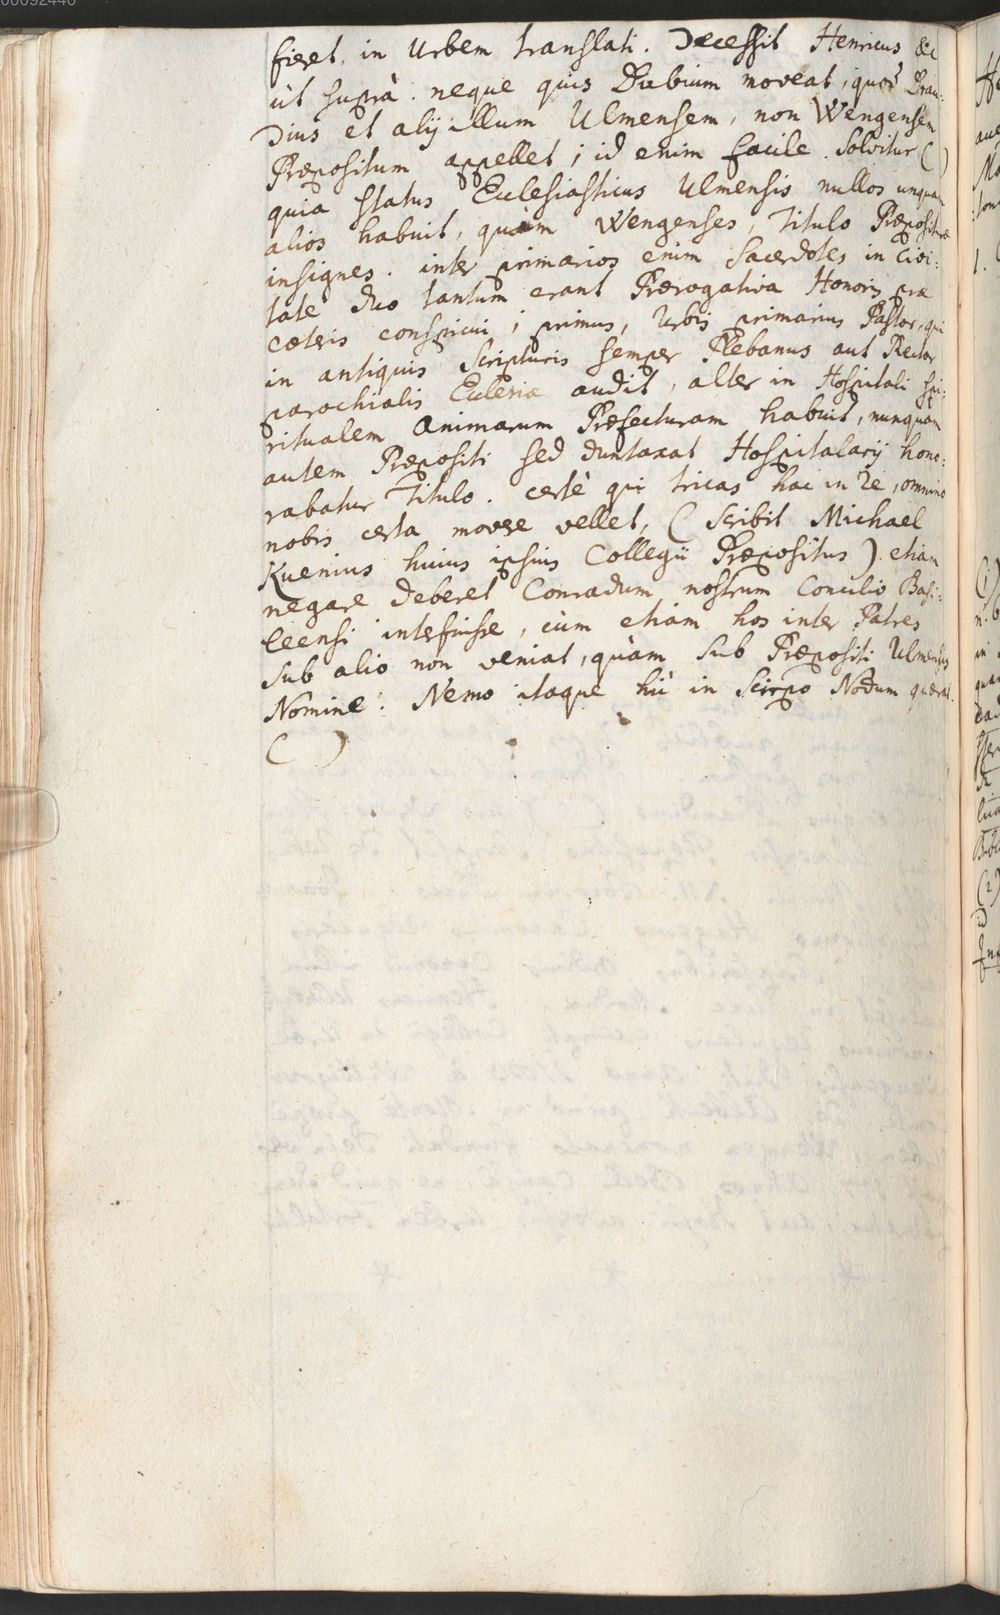 00092440
fieret, in Urbem translati. Decessit Henricus &c
ùt suprà. neque quis Dubium moveat, quod Bran:
dius et alij illum Ulmensem, non Wengensem
Præpositum appellet; id enim facile solvitur ( )
quia status Ecclesiasticus Ulmensis nullos unquam
alios habuit, quàm Wengenses, Titulo Præpositurae
insignes. inter primarios enim Sacerdotes in Civi:
tate duo tantum erant Prærogativa Honoris præ
cæteris conspicui; primus, Urbis primarius Pastor, qui
in antiquis Scripturis semper Plebanus aut Rector
parochialis Ecclesiæ audit, alter in Hospitali spi:
ritualem Animarum Præfecturam habuit, nunquam
autem Præpositi sed duntaxat Hospitalarij hono:
rabatur Titulo. certè qui tricas hac in re, omnino
nobis certa movere vellet, (scribit Michael
Kuenius huius ipsius Collegii Præpositus) etiam
negare deberet Conradum nostrum Concilio Basi:
leensi interfuisse, cùm etiam hos inter Patres
sub alio non veniat, quàm sub Præpositi Ulmensis
Nomine. Nemo itaque hìc in Scirpo Nodum quærat.
( )